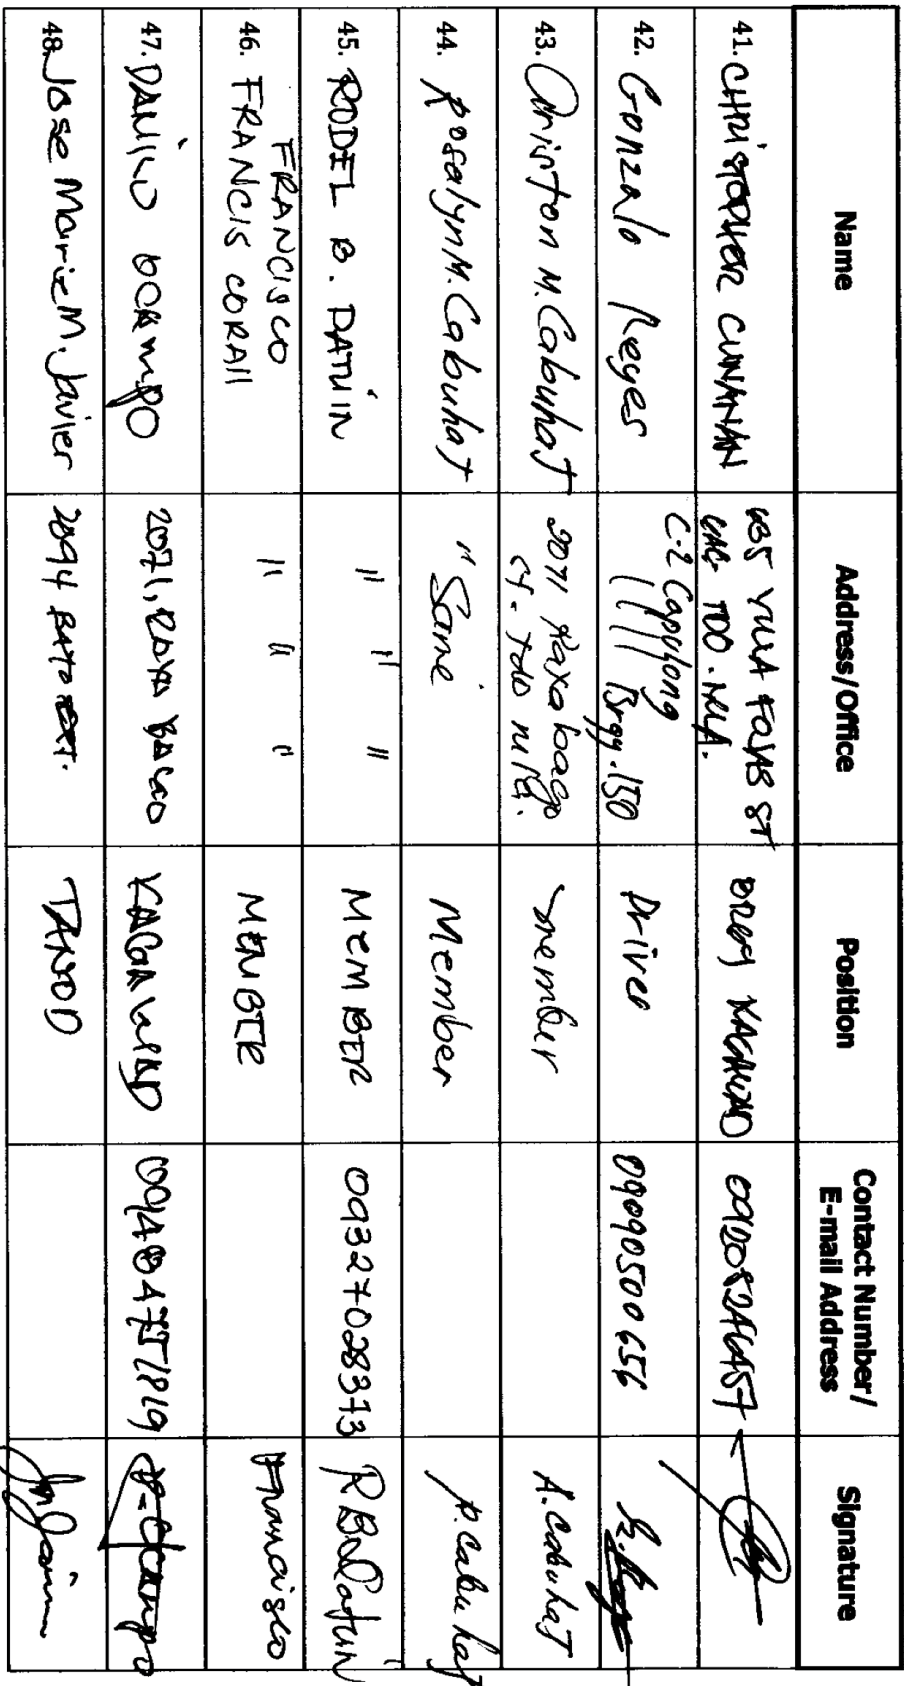 Name Address/Office Position Contact Number/ E-mail Address Signature
41. CHRISTOPHER CUNANAN VILLA FOJAS ST BRGY KAGAWAD
GAG. TDO. MLA.
42. Gonzalo Reyes C-2 Capulong Brgy. 150 Driver 09090500656
43. Ariston M. Cabuhat 2071 member A. Cabuhat
44. Rosalyn M. Cabuhat "Same Member R. Cabuhat
45. RODEL B. DATUIN " " " MEMBER 09327028373 RBDatuin
46. FRANCISCO
FRANCIS CORAll " " " MEMBER Francisco
47. DANILO OCAMPO 2071, KAGAWAD D-Ocampo
48. Jose Marie M. Javier 2894 BATO EXT. TANOD